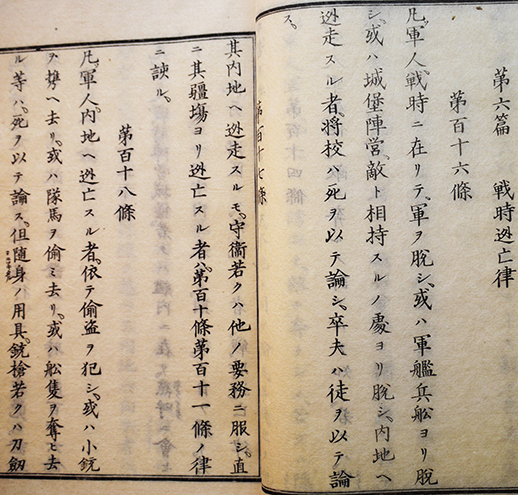 第六篇 戰時逃亡律
第百十六條
凡軍人戰時ニ在リテ軍ヲ脫シ或ハ軍艦兵舩ヨリ脫
シ或ハ城堡陣営敵ト相持スルノ處ヨリ脫シ內地ヘ
逃走スル者將校ハ死ヲ以テ論シ卒夫ハ徒ヲ以テ論
ス
第百十七條
其內地ヘ逃走スルモ守衞若クハ他ノ要務ニ服シ直
ニ其疆場ヨリ逃亡スル者ハ第百十條第百十一條ノ律
ニ諛ル
第百十八條
凡軍人內地ヘ逃亡スル者依テ偷盜ヲ犯シ或ハ小銃
ヲ携ヘ去リ或ハ隊馬ヲ偷ミ去リ或ハ舩隻ヲ奪ヒ去
ル等ハ死ヲ以テ論ス但隨身ノ用具銃槍若クハ刀劔